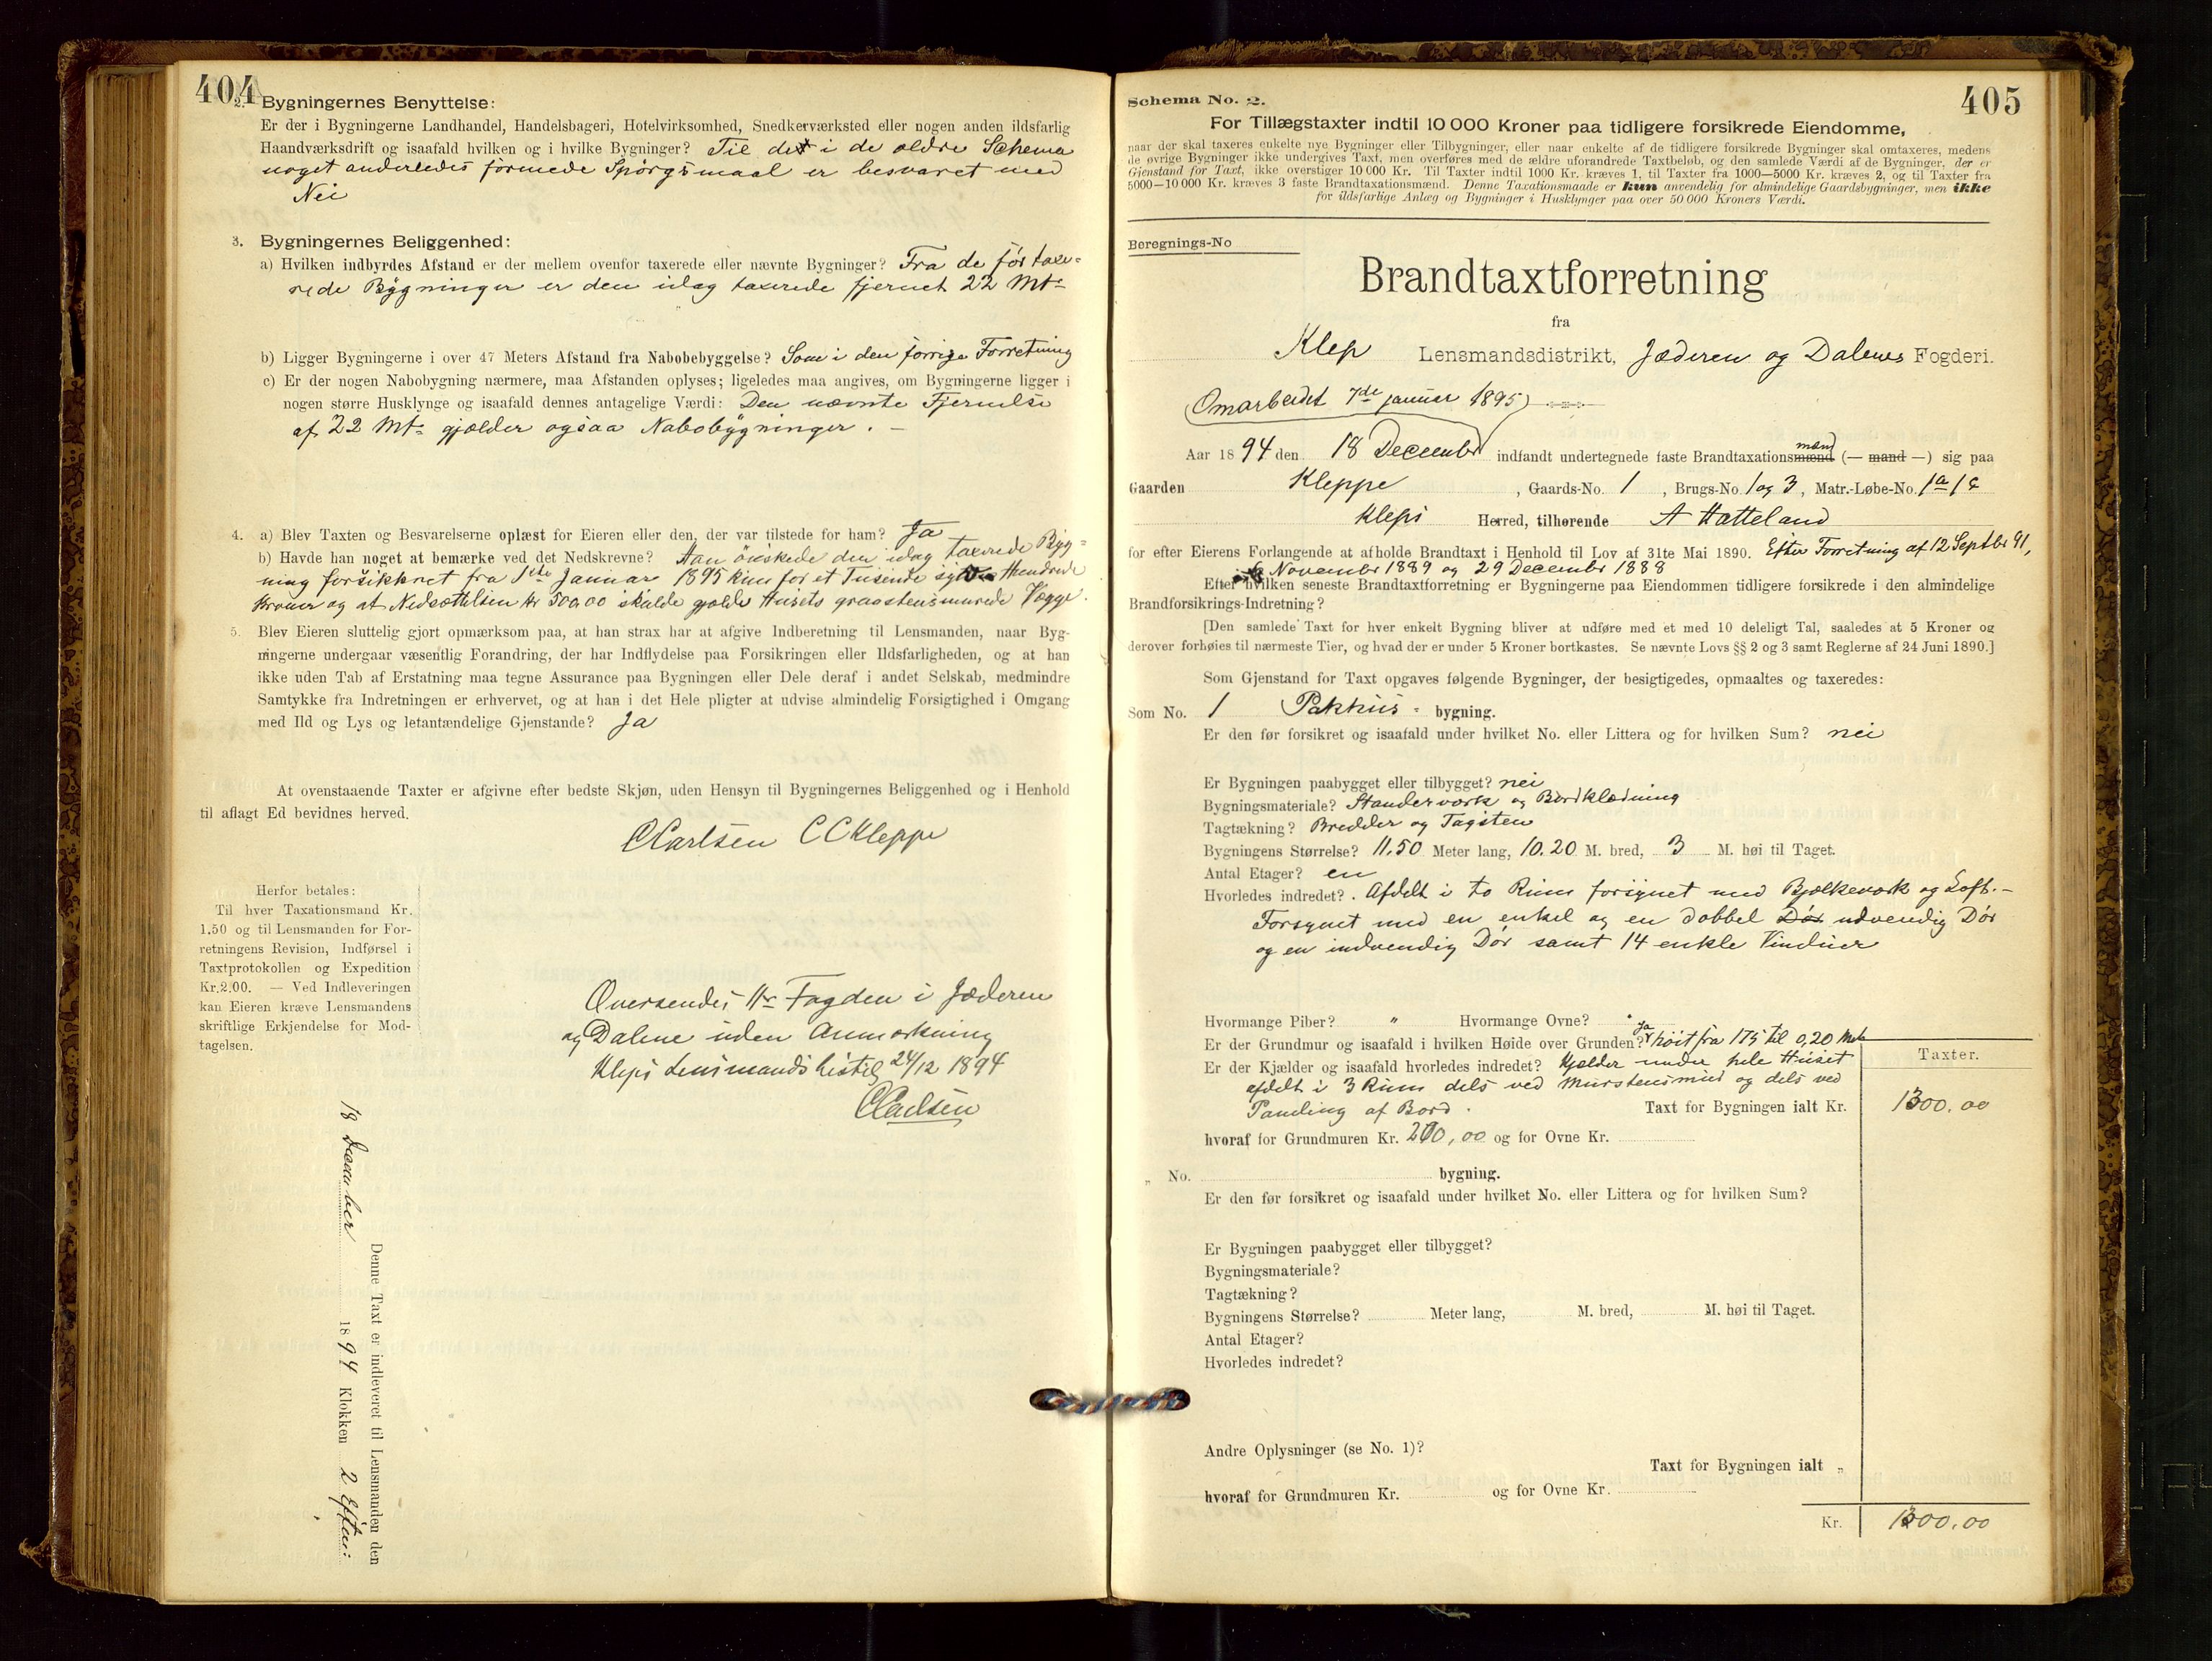 404
2. Bygningernes Benyttelse:
Er der i Bygningerne Landhandel, Handelsbageri, Hotelvirksomhed, Snedkerværksted eller nogen anden ildsfarlig
Haandværksdrift og isaafald hvilken og i hvilke Bygninger? Til det i de ældre Schema
noget anderledes formede Spörgsmaal er besvaret med
Nei
3. Bygningernes Beliggenhed:
a) Hvilken indbyrdes Afstand er der mellem ovenfor taxerede eller nævnte Bygninger? Fra de för taxe-
rede Bygninger er den idag taxerede fjernet 22 Mtr
b) Ligger Bygningerne i over 47 Meters Afstand fra Nabobebyggelse? Som i den forrige Forretning
c) Er der nogen Nabobygning nærmere, maa Afstanden oplyses; ligeledes maa angives, om Bygningerne ligger i
nogen større Husklynge og isaafald dennes antagelige Værdi: Den nævnte Fjernelse
af 22 Mtr gjælder ogsaa Nabobygninger. —
4. a) Blev Taxten og Besvarelserne oplæst for Eieren eller den, der var tilstede for ham? Ja
b) Havde han noget at bemærke ved det Nedskrevne? Han önskede den idag taxerede Byg-
ning forsikkret fra 1ste Januar 1895 kun for et Tusende Hundrede
Kroner og at Nedsættelsen Kr 300,00 skulde gjælde Husets graastensmurede Vægge.
5. Blev Eieren sluttelig gjort opmærksom paa, at han strax har at afgive Indberetning til Lensmanden, naar Byg-
ningerne undergaar væsentlig Forandring, der har Indflydelse paa Forsikringen eller Ildsfarligheden, og at han
ikke uden Tab af Erstatning maa tegne Assurance paa Bygningen eller Dele deraf i andet Selskab, medmindre
Samtykke fra Indretningen er erhvervet, og at han i det Hele pligter at udvise almindelig Forsigtighed i Omgang
med Ild og Lys og letantændelige Gjenstande? Ja
At ovenstaaende Taxter er afgivne efter bedste Skjøn, uden Hensyn til Bygningernes Beliggenhed og i Henhold
til aflagt Ed bevidnes herved.
C Carlsen C C Kleppe
Herfor betales:
Til hver Taxationsmand Kr.
1.50 og til Lensmanden for For-
retningens Revision, Indførsel i
Taxtprotokollen og Expedition
Kr.2.00. — Ved Indleveringen
kan Eieren kræve Lensmandens
skriftlige Erkjendelse for Mod-
tagelsen.
Oversendes Hr Fogden i Jæderen
og Dalene uden Anmærkning
Kleps Lensmandsbestilg 24/12 1894
C Carlsen
Denne Taxt er indleveret til Lensmanden den
18 December 1894 Klokken 2 Eftm:
Schema No. 2.
405
For Tillægstaxter indtil 10 000 Kroner paa tidligere forsikrede Eiendomme,
naar der skal taxeres enkelte nye Bygninger eller Tilbygninger, eller naar enkelte af de tidligere forsikrede Bygninger skal omtaxeres, medens
de øvrige Bygninger ikke undergives Taxt, men overføres med de ældre uforandrede Taxtbeløb, og den samlede Værdi af de Bygninger, der er
Gjenstand for Taxt, ikke overstiger 10 000 Kr. Til Taxter indtil 1000 Kr. kræves 1, til Taxter fra 1000—5000 Kr. kræves 2, og til Taxter fra
5000—10 000 Kr. kræves 3 faste Brandtaxationsmænd. Denne Taxationsmaade er kun anvendelig for almindelige Gaardsbygninger, men ikke
for ildsfarlige Anlæg og Bygninger i Husklynger paa over 50 000 Kroners Værdi.
Beregnings-No
Brandtaxtforretning
fra
Klep Lensmandsdistrikt, Jæderen og Dalenes Fogderi.
(Omarbeidet 7de januar 1895)
Aar 1894 den 18 December indfandt undertegnede faste Brandtaxationsmænd mænd (— mand —) sig paa
Gaarden Kleppe, Gaards-No. 1, Brugs-No. 1 og 3, Matr.-Løbe-No. 1a 1c
Kleps Herred, tilhørende A Hatteland
for efter Eierens Forlangende at afholde Brandtaxt i Henhold til Lov af 31te Mai 1890. Efter Forretning af 12 Septbr 91,
6 November 1889 og 29 December 1888
Efter hvilken seneste Brandtaxtforretning er Bygningerne paa Eiendommen tidligere forsikrede i den almindelige
Brandforsikrings-Indretning?
[Den samlede Taxt for hver enkelt Bygning bliver at udføre med et med 10 deleligt Tal, saaledes at 5 Kroner og
derover forhøies til nærmeste Tier, og hvad der er under 5 Kroner bortkastes. Se nævnte Lovs §§ 2 og 3 samt Reglerne af 24 Juni 1890.]
Som Gjenstand for Taxt opgaves følgende Bygninger, der besigtigedes, opmaaltes og taxeredes:
Som No. 1 Pakhus- bygning.
Er den før forsikret og isaafald under hvilket No. eller Littera og for hvilken Sum? nei
Er Bygningen paabygget eller tilbygget? nei
Bygningsmateriale? Standerværk og Bordklædning
Tagtækning? Bredder og Tagsten
Bygningens Størrelse? 11.50 Meter lang, 10.20 M. bred, 3 M. høi til Taget.
Antal Etager? en
Hvorledes indredet? Afdelt i to Rum forsynet med Bjælkeværk og Loft.-
Forsynet med en enkel og en dobbel Dör udvendig Dör
og en indvendig Dör samt 14 enkle Vinduer
Hvormange Piber? " Hvormange Ovne? "
Er der Grundmur og isaafald i hvilken Høide over Grunden? Ja höit fra 175 til 0,20 Mtr
Er der Kjælder og isaafald hvorledes indredet? Kjælder under hele Huset
afdelt i 3 Rum dels ved Murstensmur og dels ved
Paneling af Bord.
Taxter.
Taxt for Bygningen ialt Kr. 1300.00
hvoraf for Grundmuren Kr. 200,00 og for Ovne Kr.
„ No. bygning.
Er den før forsikret og isaafald under hvilket No. eller Littera og for hvilken Sum?
Er Bygningen paabygget eller tilbygget?
Bygningsmateriale?
Tagtækning?
Bygningens Størrelse? Meter lang, M. bred, M. høi til Taget.
Antal Etager?
Hvorledes indredet?
Andre Oplysninger (se No. 1)?
Taxt for Bygningen ialt „
hvoraf for Grundmuren Kr. og for Ovne Kr.
Kr. 1300.00